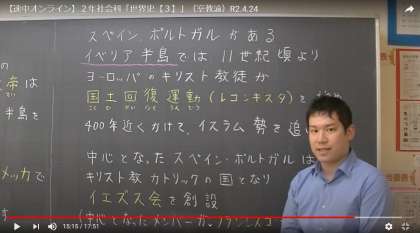 【速中オンライン】２年社会科「世界史【３】」（宗教論）R2.4.24
スペイン、ポルトガルがある
イベリア半島では 11世紀頃より
ヨーロッパのキリスト教徒が
国土回復運動(レコンキスタ)を
400年近くかけて、イスラム勢を追い
中心となったスペイン・ポルトガルは
キリスト教カトリックの国となり
イエズス会を創設
(中心となったメンバーが、フランシスコ
帝は
半島を
メッカで
す
15:15 / 17:51